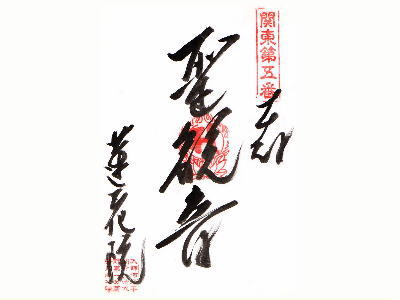 関東第五番
奉
聖観音
蓮花院